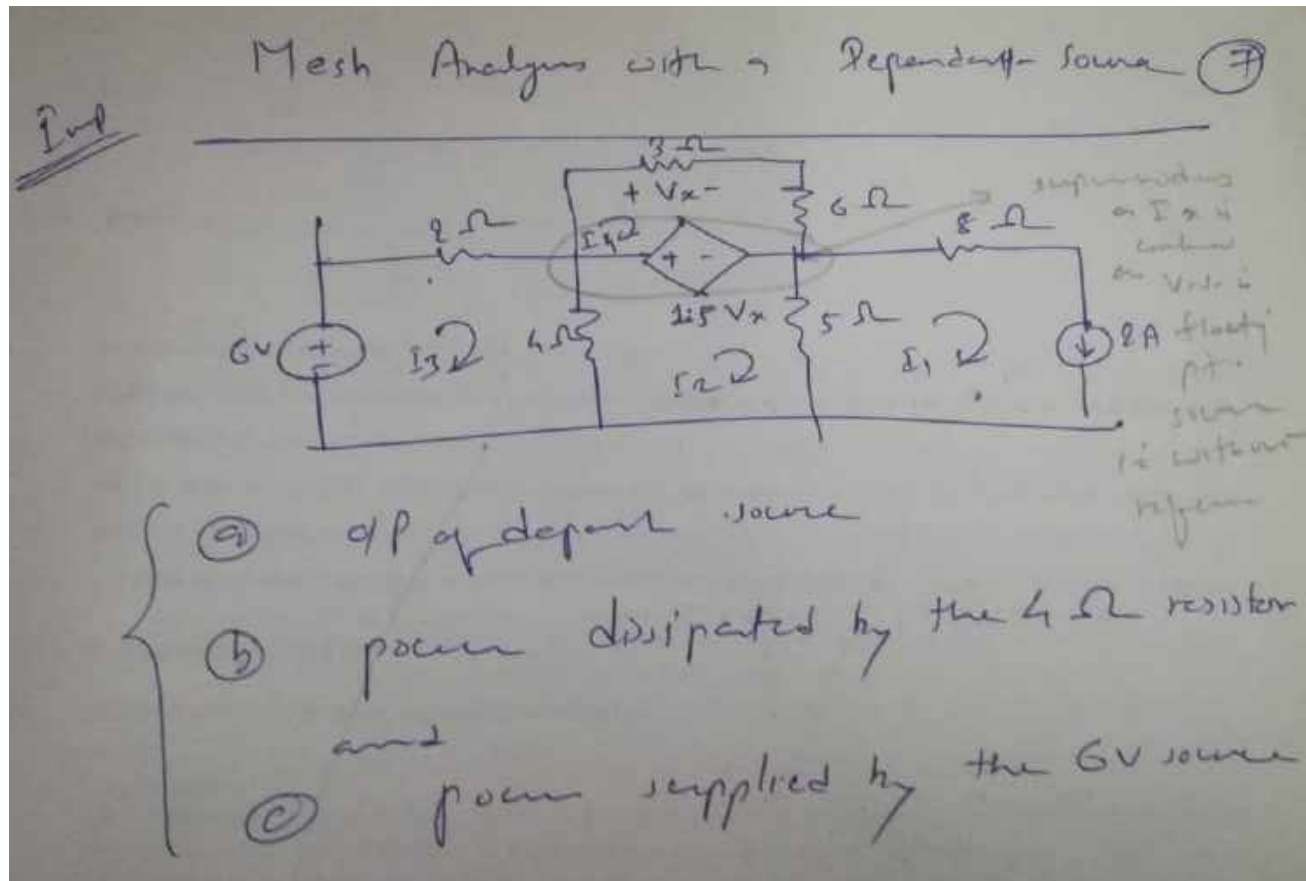 Mesh Analysis with a Dependent Source 7
Imp
3 Ω
+ Vx -
6 Ω
2 Ω
8 Ω
I4
+ -
1.5 Vx
6V
+
-
I3
4 Ω
I2
5 Ω
I1
2A
supernodes
as Ix is
on
floating
without
(a) o/p of source
(b) power dissipated by the 4 Ω resistor
and
(c) power supplied by the 6V source